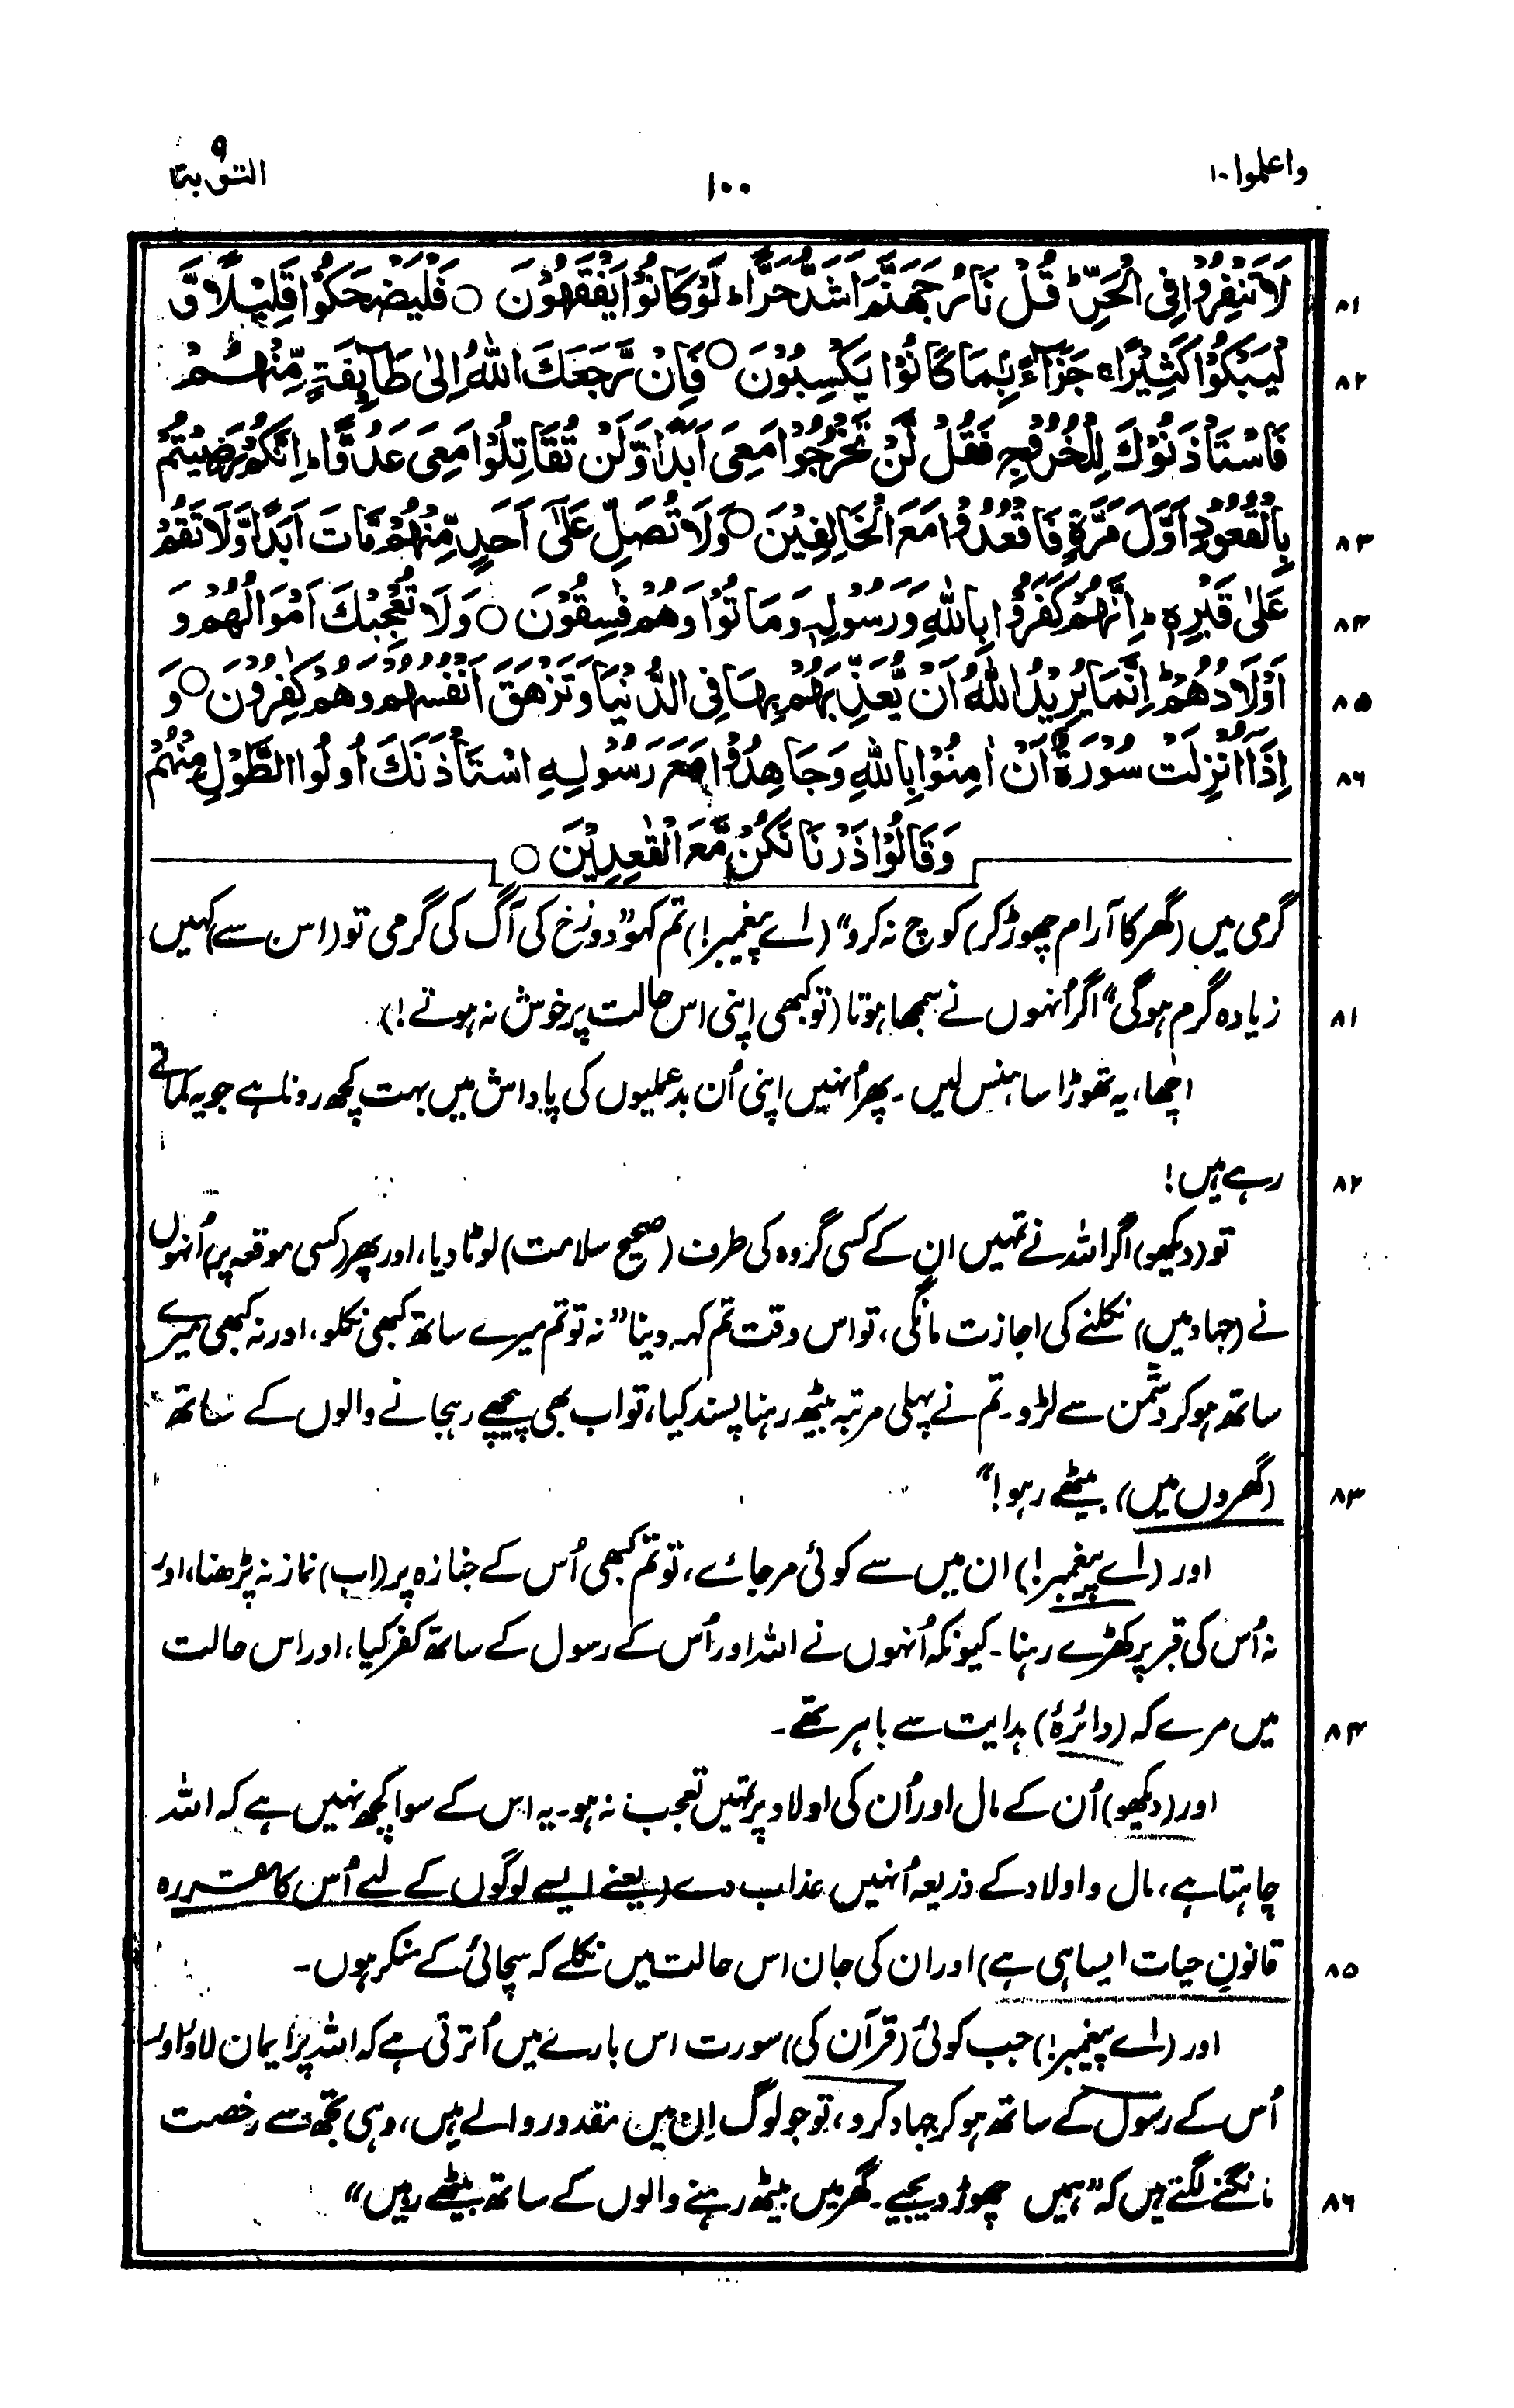 واعلموا ۱۰
۱۰۰
التوبۃ ۹
لَا تَنْفِرُوْا فِی الْحَرِّ ؕ قُلْ نَارُ جَهَنَّمَ اَشَدُّ حَرًّا ؕ لَوْ كَانُوْا یَفْقَهُوْنَ ○ فَلْیَضْحَكُوْا قَلِیْلًا وَّ ۸۱
لْیَبْكُوْا كَثِیْرًا ۚ جَزَآءًۢ بِمَا كَانُوْا یَكْسِبُوْنَ ○ فَاِنْ رَّجَعَكَ اللّٰهُ اِلٰى طَآىِٕفَةٍ مِّنْهُمْ ۸۲
فَاسْتَاْذَنُوْكَ لِلْخُرُوْجِ فَقُلْ لَّنْ تَخْرُجُوْا مَعِیَ اَبَدًا وَّلَنْ تُقَاتِلُوْا مَعِیَ عَدُوًّا ؕ اِنَّكُمْ رَضِیْتُمْ
بِالْقُعُوْدِ اَوَّلَ مَرَّةٍ فَاقْعُدُوْا مَعَ الْخَالِفِیْنَ ○ وَلَا تُصَلِّ عَلٰۤى اَحَدٍ مِّنْهُمْ مَّاتَ اَبَدًا وَّلَا تَقُمْ ۸۳
عَلٰى قَبْرِهٖ ؕ اِنَّهُمْ كَفَرُوْا بِاللّٰهِ وَرَسُوْلِهٖ وَمَاتُوْا وَهُمْ فٰسِقُوْنَ ○ وَلَا تُعْجِبْكَ اَمْوَالُهُمْ وَ ۸۴
اَوْلَادُهُمْ ؕ اِنَّمَا یُرِیْدُ اللّٰهُ اَنْ یُّعَذِّبَهُمْ بِهَا فِی الدُّنْیَا وَتَزْهَقَ اَنْفُسُهُمْ وَهُمْ كٰفِرُوْنَ ○ وَ ۸۵
اِذَاۤ اُنْزِلَتْ سُوْرَةٌ اَنْ اٰمِنُوْا بِاللّٰهِ وَجَاهِدُوْا مَعَ رَسُوْلِهِ اسْتَاْذَنَكَ اُولُوا الطَّوْلِ مِنْهُمْ ۸۶
وَقَالُوْا ذَرْنَا نَكُنْ مَّعَ الْقٰعِدِیْنَ ○
گرمی میں (گھر کا آرام چھوڑ کر) کوچ نہ کرو" (اے پیغمبر!) تم کہو "دوزخ کی آگ کی گرمی تو (اس سے) کہیں
زیادہ گرم ہوگی" اگر اُنہوں نے سمجھا ہوتا (تو کبھی اپنی اس حالت پر خوش نہ ہوتے!) ۸۱
اچھا، یہ تھوڑا سا ہنس لیں۔ پھر اُنہیں اپنی اُن بدعملیوں کی پاداش میں بہت کچھ رونا ہے جو یہ کماتے
رہے ہیں! ۸۲
تو (دیکھو) اگر اللہ نے تمہیں ان کے کسی گروہ کی طرف (صحیح سلامت) لوٹا دیا، اور پھر (کسی موقعہ پر) اُنہوں
نے (جہاد میں) نکلنے کی اجازت مانگی، تو اس وقت تم کہہ دینا "نہ تو تم میرے ساتھ کبھی نکلو، اور نہ کبھی میرے
ساتھ ہو کر دشمن سے لڑو۔ تم نے پہلی مرتبہ بیٹھ رہنا پسند کیا، تو اب بھی پیچھے رہجانے والوں کے ساتھ
(گھروں میں) بیٹھے رہو!" ۸۳
اور (اے پیغمبر!) ان میں سے کوئی مرجائے، تو تم کبھی اُس کے جنازہ پر (اب) نماز نہ پڑھنا، اور
نہ اُس کی قبر پر کھڑے رہنا۔ کیونکہ اُنہوں نے اللہ اور اُس کے رسول کے ساتھ کفر کیا، اور اس حالت
میں مرے کہ (دائرۂ) ہدایت سے باہر تھے۔ ۸۴
اور (دیکھو) اُن کے مال اور اُن کی اولاد پر تمہیں تعجب نہ ہو۔ یہ اس کے سوا کچھ نہیں ہے کہ اللہ
چاہتا ہے، مال و اولاد کے ذریعہ اُنہیں عذاب دے (یعنے ایسے لوگوں کے لیے اُس کا مقررہ
قانونِ حیات ایسا ہی ہے) اور ان کی جان اس حالت میں نکلے کہ سچائی کے منکر ہوں۔ ۸۵
اور (اے پیغمبر!) جب کوئی (قرآن کی) سورت اس بارے میں اُترتی ہے کہ اللہ پر ایمان لاؤ اور
اُس کے رسول کے ساتھ ہو کر جہاد کرو، تو جو لوگ اِن میں مقدور والے ہیں، وہی تجھ سے رخصت
مانگنے لگتے ہیں کہ "ہمیں چھوڑ دیجیے۔ گھر میں بیٹھ رہنے والوں کے ساتھ بیٹھے رہیں" ۸۶